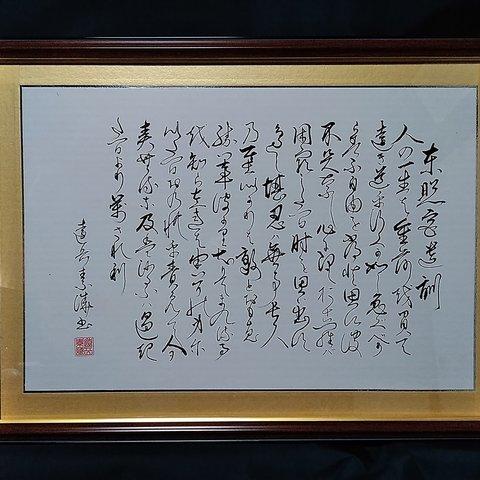 東照宮遺訓
人の一生は重荷を負て
遠き道を行くか如し急くへか
らす不自由を常と思へは
不足なし心に望おこらは
困窮したる時を思ひ出す
へし堪忍は無事長久
の基いかりは敵とおもへ
勝事はかり知りてまくる事
を知らされは害其身に
いたるおのれを責めて人を
責むるな及はさるは過き
たるよりまされり
書